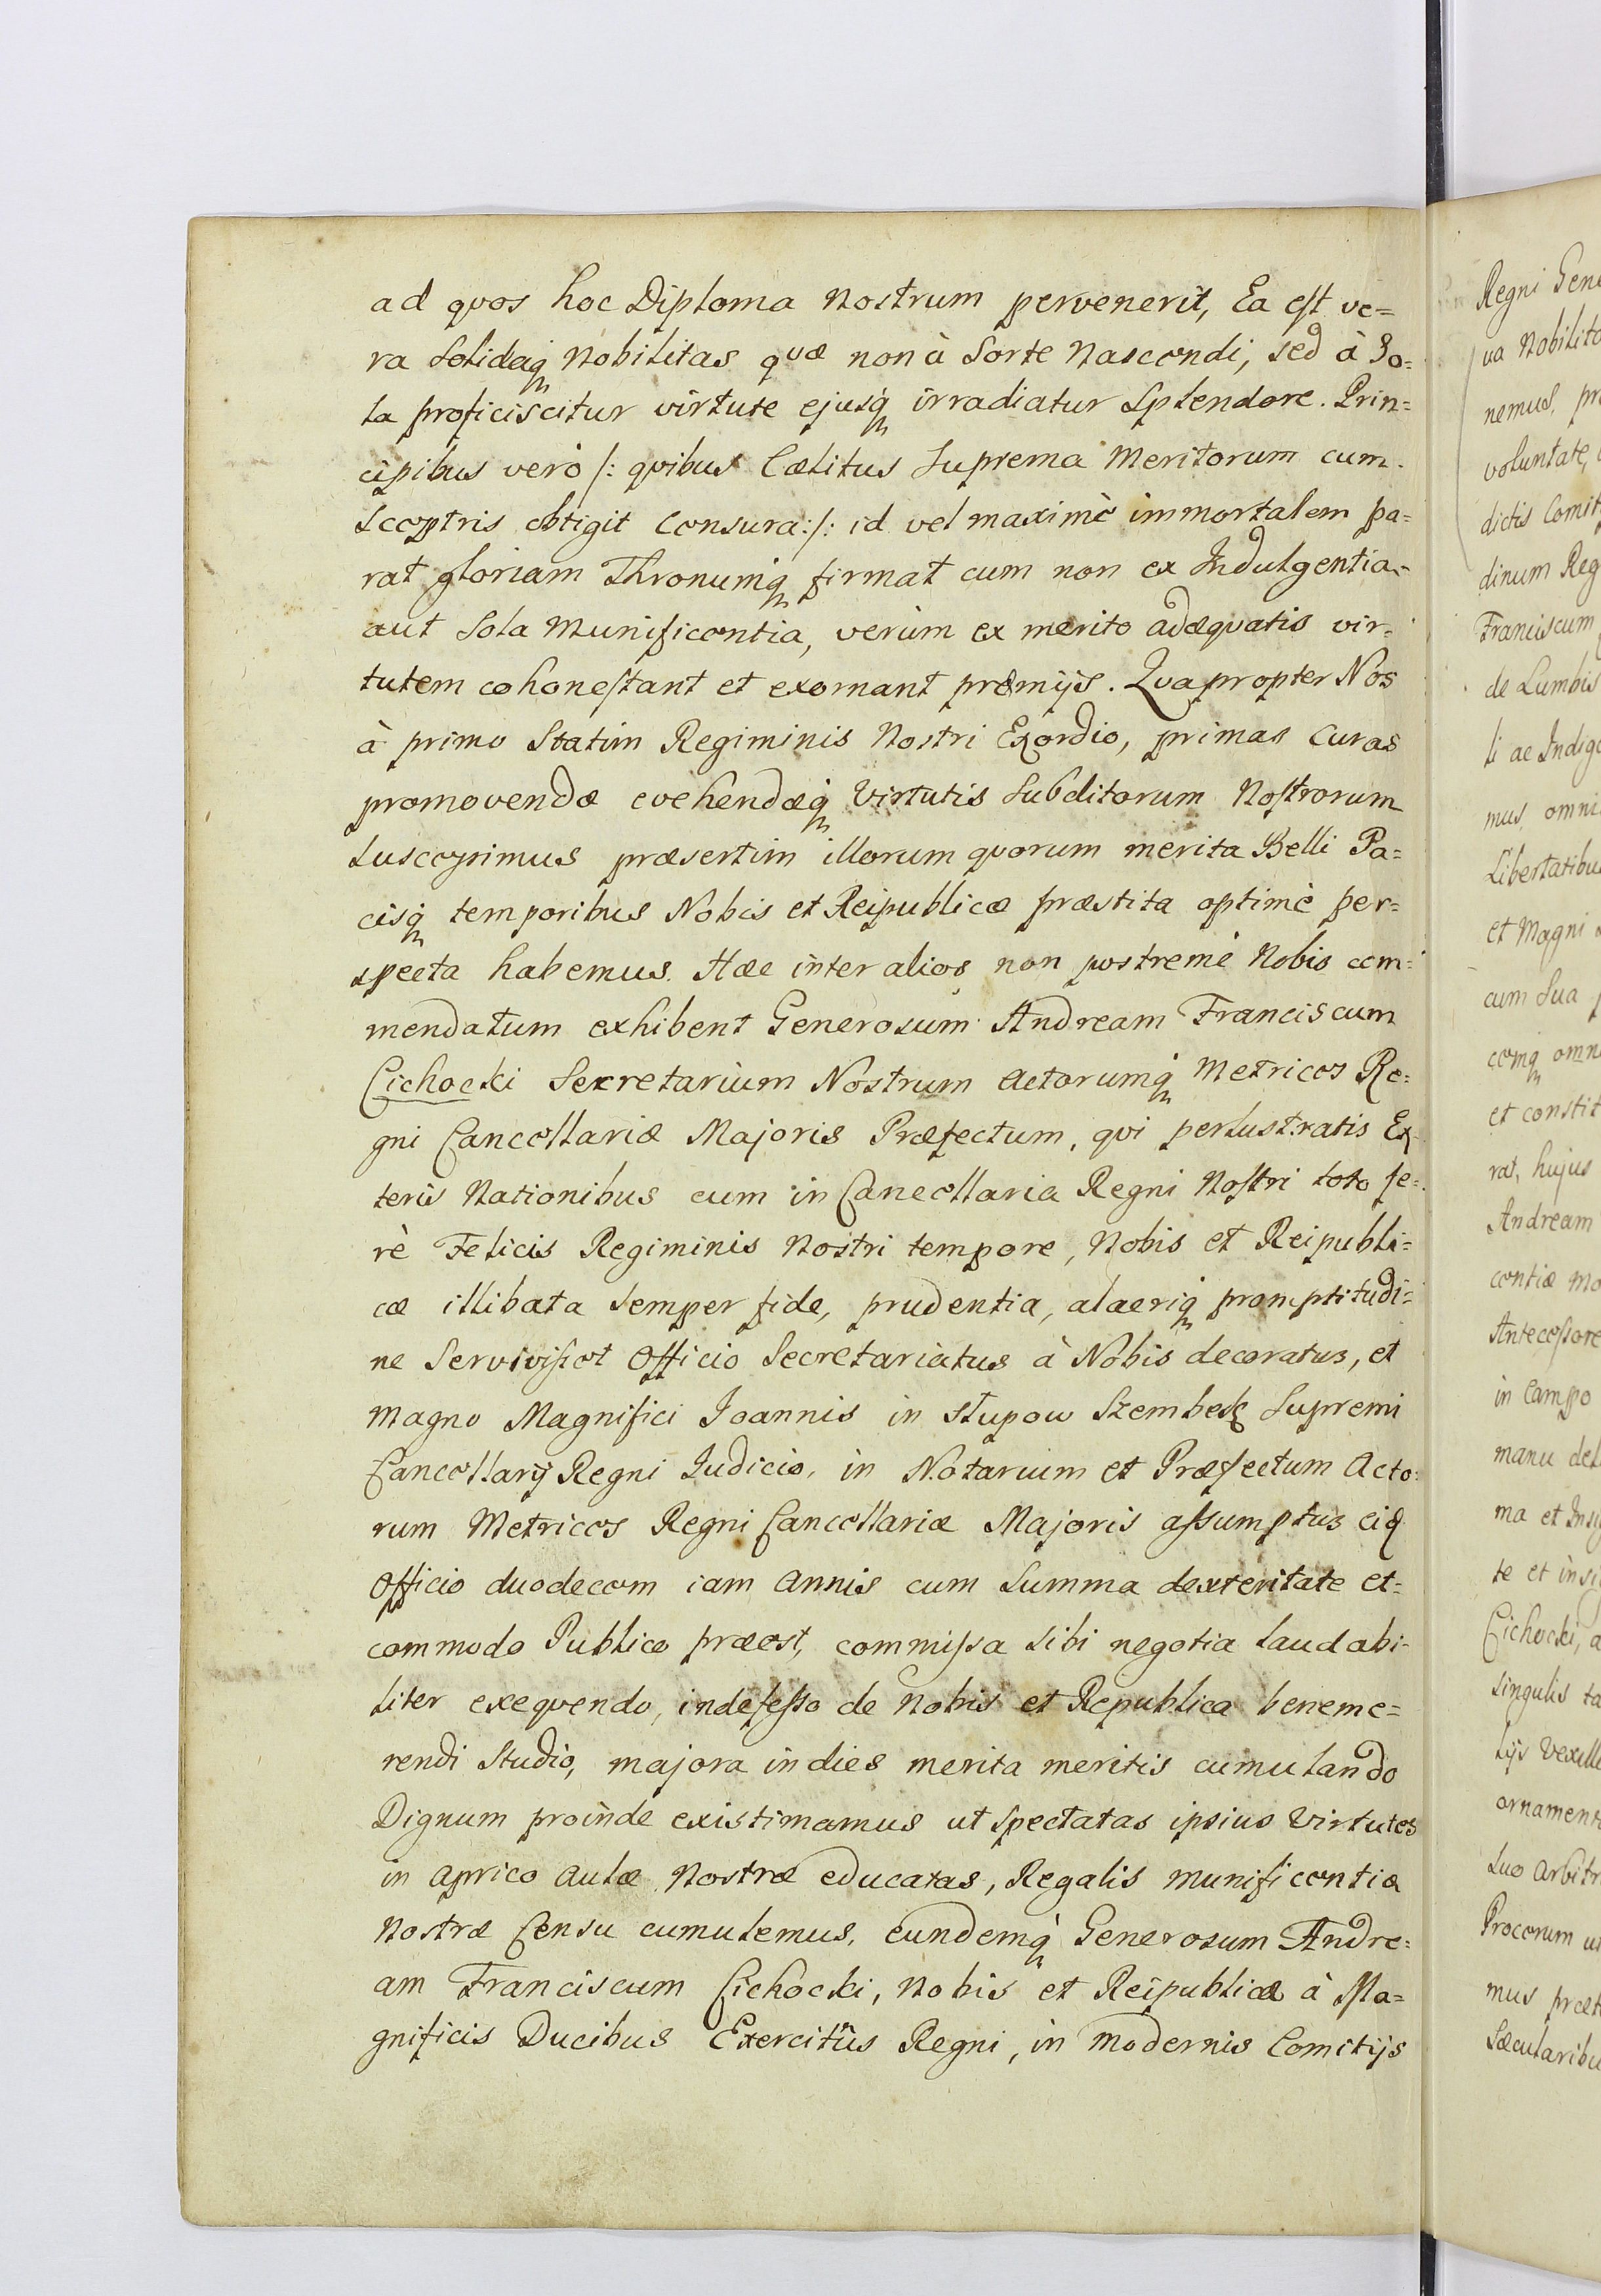 ad quos hoc Diploma Nostrum pervenerit, Ea est ve=
ra Solidaq₃ Nobilitas quæ non à Sorte Nascendi, sed à So=
la proficiscitur virtute ejusq₃ irradiatur Splendore. Prin=
cipibus verò /: quibus Cœlitus Suprema Meritorum cum
Sceptris obtigit Censura :/: id vel maximè immortalem pa=
rat gloriam Thronumq₃ firmat cum non ex Indulgentia
aut Sola Munificentia, verùm ex merito adæquatis vir=
tutem cohonestant et exornant præmijs. Quapropter Nos
à primo Statim Regiminis Nostri Exordio, primas Curas
promovendæ evehendæq₃ Virtutis Subditorum Nostrorum
Suscepimus præsertim illorum quorum merita Belli Pa=
cisq₃ temporibus Nobis et Reipublicæ præstita optimè per=
specta habemus. Hæc inter alios non postremè Nobis com=
mendatum exhibent Generosum Andream Franciscum
Cichocki Secretarium Nostrum Actorumq₃ Metrices Re=
gni Cancellariæ Majoris Præfectum, qui perlustratis Ex
teris Nationibus cum in Cancellaria Regni Nostri toto fe=
rè Felicis Regiminis Nostri tempore, Nobis et Reipubli=
cæ illibata Semper fide, prudentia, alacriq₃ promptitudi=
ne Servivisset Officio Secretariatus à Nobis decoratus, et
Magno Magnifici Joannis in Słupow Szembek Supremi
Cancellarij Regni Judicio, in Notarium et Præfectum Acto=
rum Metrices Regni Cancellariæ Majoris assumptus eiq₃
Officio duodecem iam Annis cum Summa dexteritate et=
commodo Publico præest, commissa Sibi negotia laudabi=
liter exequendo, indefesso de Nobis et Republica beneme=
rendi Studio, majora in dies merita meritis cumulando
Dignum proinde existimamus ut Spectatas ipsius Virtutes
in Aprico Aulæ Nostræ educatas, Regalis Munificentiæ
Nostræ Censu cumulemus, eundemq₃ Generosum Andre=
am Franciscum Cichocki, Nobis et Reipublicæ à Ma=
gnificis Ducibus Exercitûs Regni, in Modernis Comitijs
Regni Gen
va Nobilita
nemus, pr
voluntate,
dictis Comit
dinum Reg
Franciscum
de Lumbis
li ac Indige
mus, omni
Libertatibu
et Magni
cum Sua
comq₃ omn
et constit
rat, hujus
Andream
centiæ mo
Antecessore
in Campo
manu del
ma et Insi
te et insi
Cichocki, a
singulis ta
lijs Vexill
ornament
suo Arbitr
Procerum u
mus præt
Sæcularibu